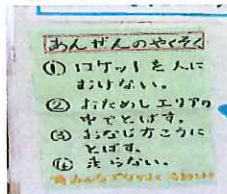 あんぜんのやくそく
① ロケットを人に
むけない。
② おためしエリアの
中でとばす。
③ おなじ方こうに
とばす。
④ 走らない。